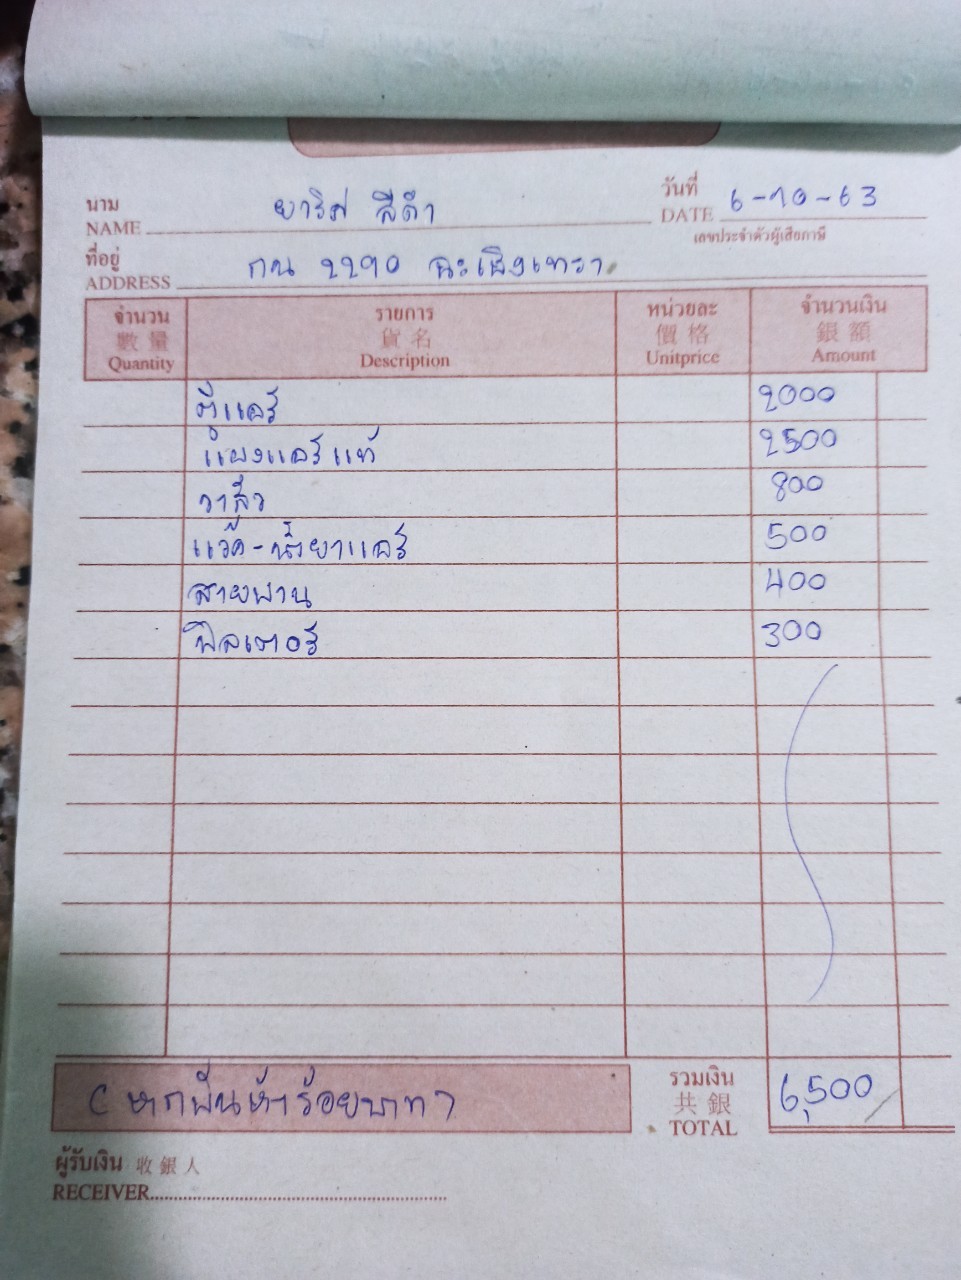 นาม ยาริศ สีดำ วันที่ 6-10-63
NAME DATE
เลขประจำตัวผู้เสียภาษี
ที่อยู่ กน 2290 ฉะเชิงเทรา
ADDRESS
จำนวน รายการ หน่วยละ จำนวนเงิน
數量 貨名 價格 銀額
Quantity Description Unitprice Amount
ตู้แอร์ 2000
แผงแอร์แท้ 2500
วาล์ว 800
แว๊ค-น้ำยาแอร์ 500
สายพาน 400
ฟิลเตอร์ 300
(หกพันห้าร้อยบาท) รวมเงิน 6,500
共銀
TOTAL
ผู้รับเงิน 收銀人
RECEIVER